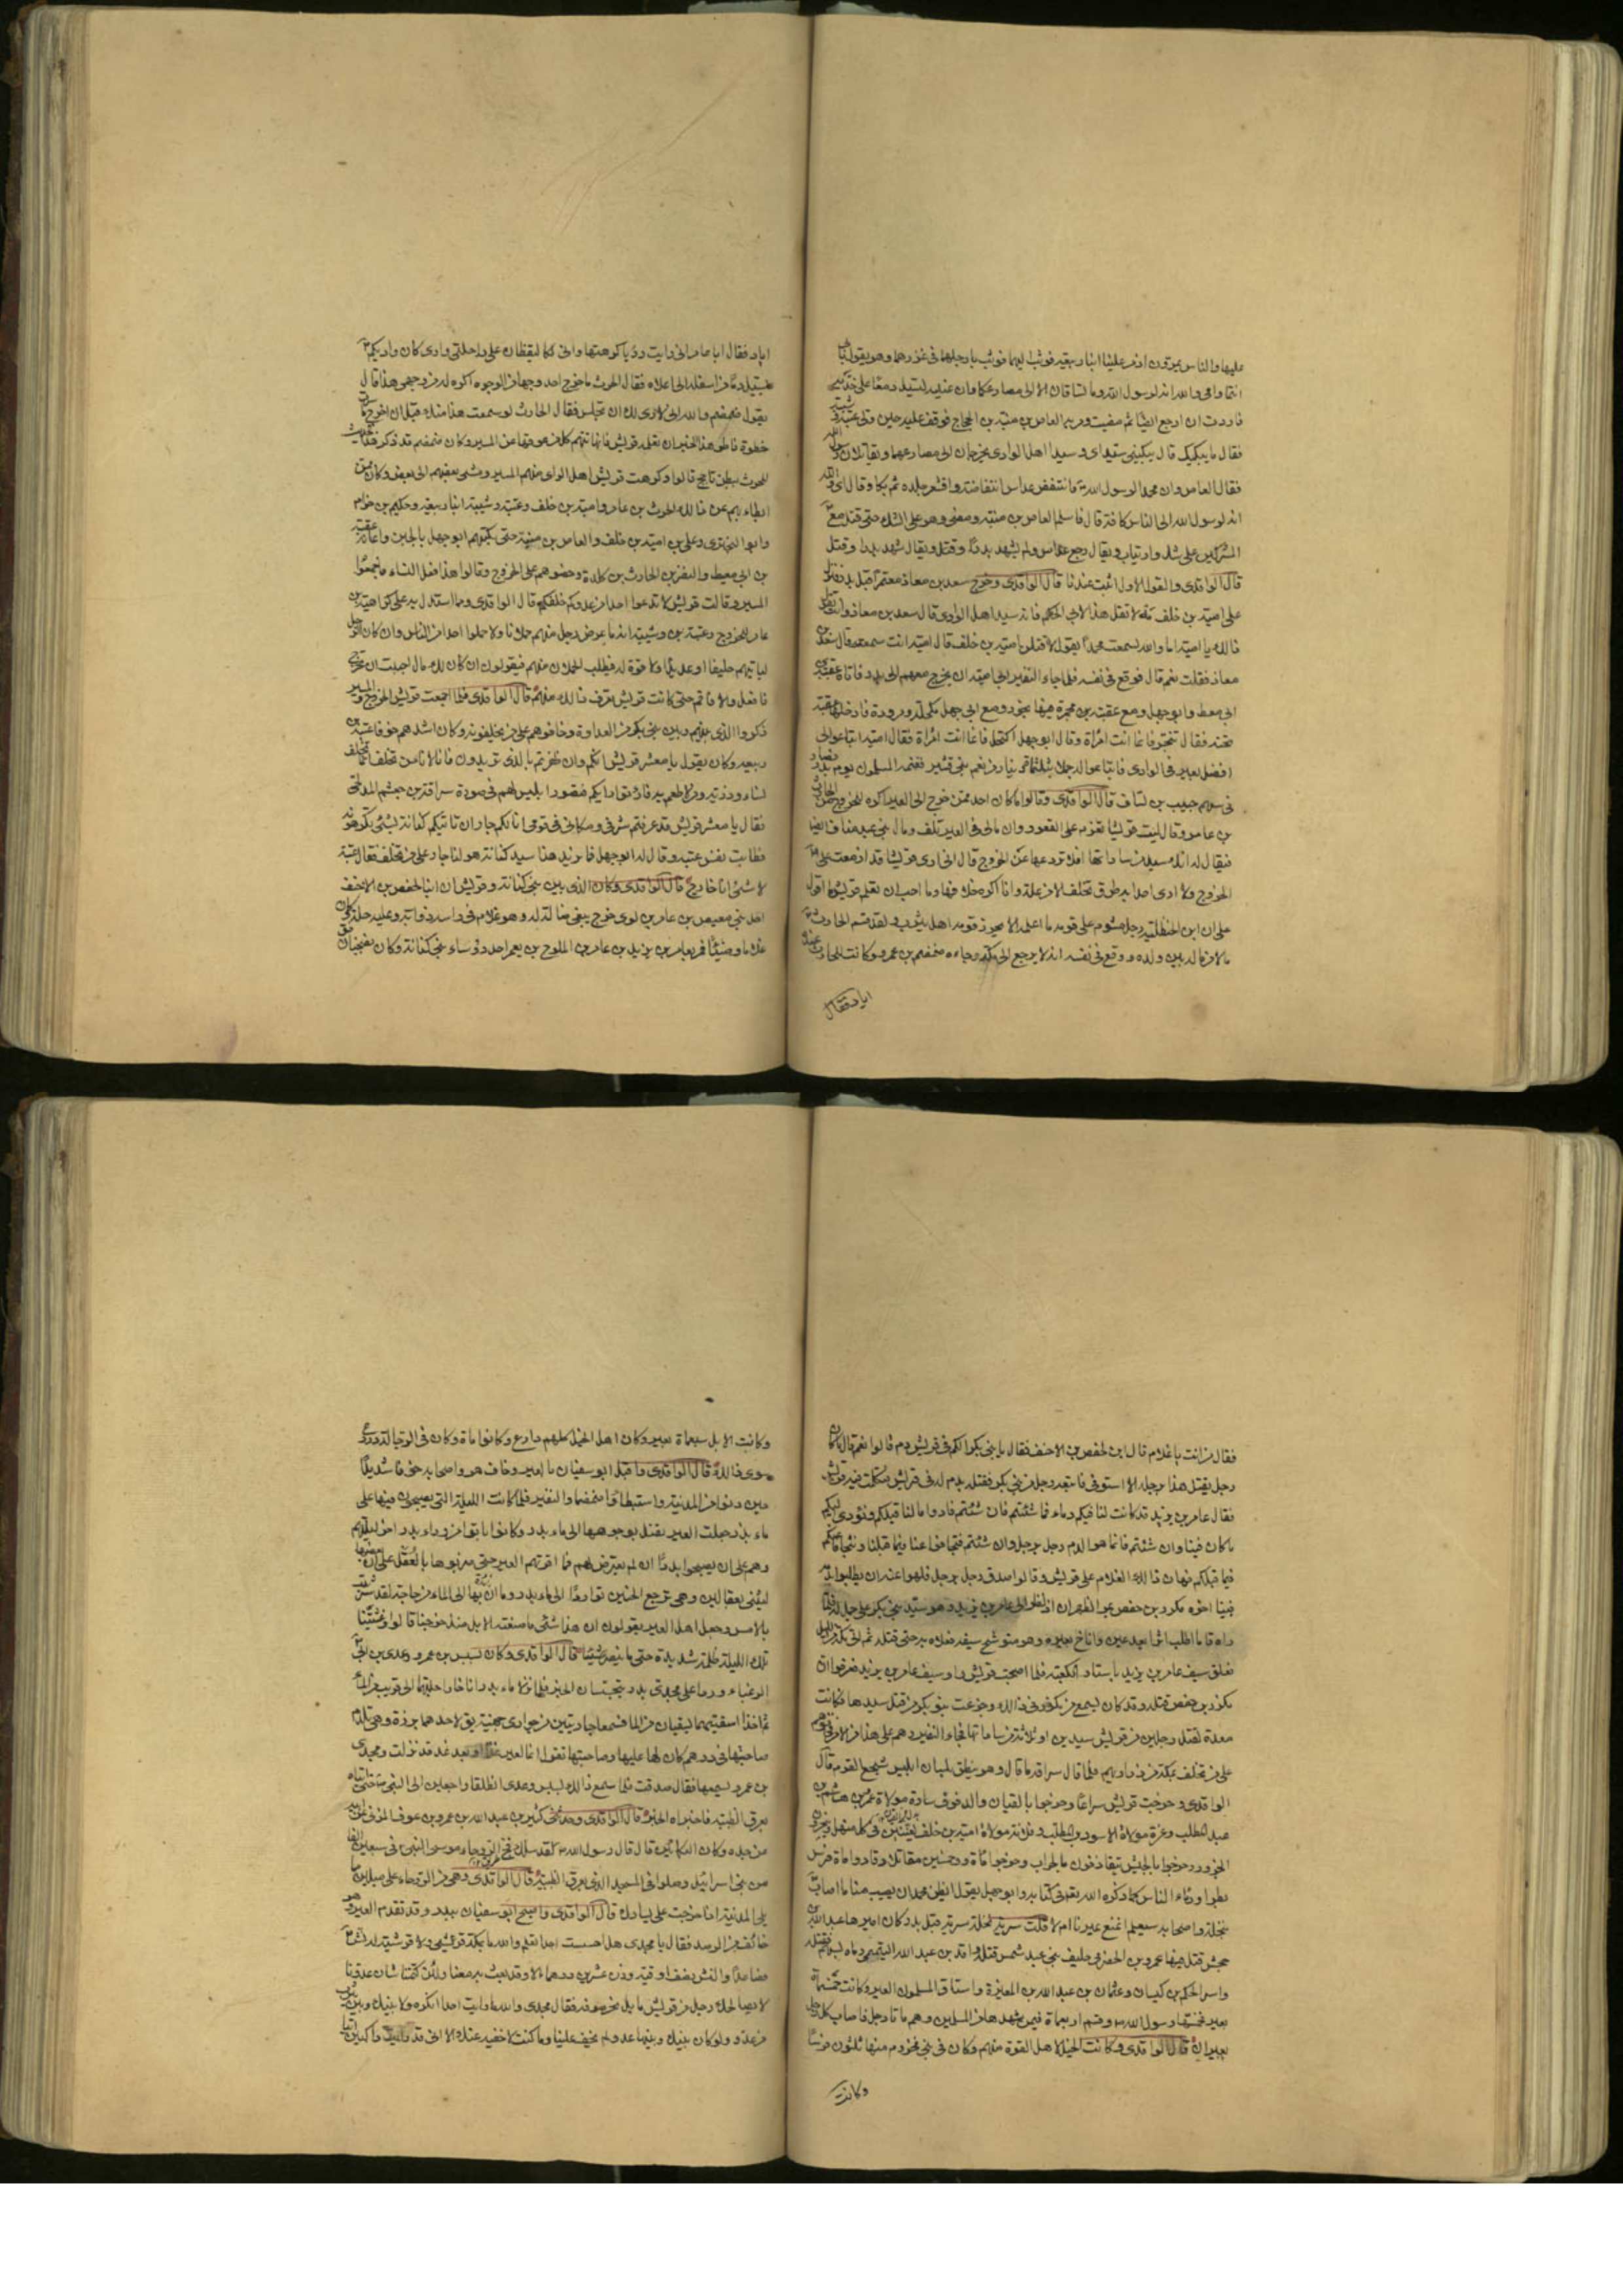 عليها والناس يمرون اذ مر علينا ابنا ربيعة فوثب اليهما فوثب بارجلهما في غرزهما وهو يقول بابي
انتما وامي والله انه لرسول الله وما تساقان الا الى مصارعكما وان عينيه لتسيل دمعا على خديه
فاردت ان ارجع ايضا ثم مضيت ومر به العاص بن منبه بن الحجاج فوقف عليه حين ولى عتبة وشيبة
فقال ما يبكيك قال يبكيني سيداي وسيدا اهل الوادي يخرجان الى مصارعهما ويقاتلان رسول الله
فقال العاص وان محمدا لرسول الله فانتفض عداس انتفاضة واقشعر جلده ثم بكا وقال اي والله
انه لرسول الله الى الناس كافة قال فاسلم العاص بن منبه ومضى وهو على الشك حتى قتل مع
المشركين على شك وارتياب ويقال رجع عداس ولم يشهد بدرا وقتل ويقال شهد بدرا وقتل
قال الواقدي والقول الاول اثبت عندنا قال الواقدي وخرج سعد بن معاذ معتمرا قبل بدر فنزل
على امية بن خلف مه لا تقل هذا لابي الحكم فانه سيد اهل الوادي قال سعد بن معاذ وانت تقول
ذلك يا امية اما والله لسمعت محمدا يقول لاقتلن امية بن خلف قال امية انت سمعته قال سعد بن
معاذ فقلت نعم قال فوقع في نفسه فلما جاء النفير ابى امية ان يخرج معهم الى بدر فاتاه عقبة بن
ابي معيط وابو جهل ومع عقبة بن مجمرة فيها بخور ومع ابي جهل مكحلة ومرودة فادخلها عقبة
تحته فقال تبخر فانما انت امراة وقال ابو جهل اكتحل فانما انت امراة فقال امية ابتاعوا لي
افضل بعير في الوادي فابتاعوا له جملا بثلثمائة دينار من نعم بني قشير فغنمه المسلمون يوم بدر فصار
في سهم حبيب بن يساف قال الواقدي وقالوا ما كان احد ممن خرج الى العير اكره للخروج من الحارث
بن عامر وقال ليت قريشا تعزم على القعود وان مالي في العير تلف ومال بني عبد مناف ايضا
فيقال له انك سيد من ساداتها افلا تردعها عن الخروج قال اني ارى قريشا قد ازمعت على
الخروج ولا ارى احدا به طرق تخلف الا من علة وانا اكره خلافها وما احب ان تعلم قريش ما اقول
على ان ابن الحنظلية رجل مشوم على قومه ما اعلمه الا يحرز قومه اهل يثرب ولقد قسم الحارث
مالا من ماله بين ولده ووقع في نفسه انه لا يرجع الى مكة وجاءه ضمضم بن عمرو وكانت للحارث عنده
اياد فقال
اياد فقال ابا عامر اني رايت رؤيا كرهتها واني كاليقظان على راحلتي وارى كان واديكم
يسيل دما من اسفله الى اعلاه فقال الحرث ما خرج احد وجها من الوجوه اكره له من وجهي هذا قال
يقول ضمضم والله اني لارى لك ان تجلس فقال الحارث لو سمعت هذا منك قبل ان اخرج ما سرت
خطوة فاطو هذا الخبر ان تعلمه قريش فانها تتهم كل من عوقها عن المسير وكان ضمضم قد ذكر هذا
للحرث ببطن ياجج قالوا وكرهت قريش اهل الراي منهم المسير ومشى بعضهم الى بعض وكان من
ابطاءهم عن ذلك الحرث بن عامر وامية بن خلف وعتبة وشيبة ابنا ربيعة وحكيم بن حزام
وابو البختري وعلي بن امية بن خلف والعاص بن منبه حتى بكتهم ابو جهل بالجبن واعانه عقبة
بن ابي معيط والنضر بن الحارث بن كلدة وحضوهم على الخروج وقالوا هذا فعل النساء فاجمعوا
المسير وقالت قريش لا تدعوا احدا من عدوكم خلفكم قال الواقدي ومما استدل به على كراهية بن
عامر للخروج وعتبة بن وشيبة انه ما عرض رجل منهم حملانا ولا حملوا احدا من الناس وان كان الرجل
لياتيهم حليفا او عديما ولا قوة له فيطلب الحملان منهم فيقولون ان كان لك مال احببت ان تخرج
فافعل والا فاقم حتى كانت قريش تعرف ذلك منهم قال الواقدي فلما اجمعت قريش الخروج والمسير
ذكروا الذي بينهم وبين بني بكر من العداوة وخافوهم على من يخلفونه وكان اشدهم خوفا عتبة بن
ربيعة وكان يقول يا معشر قريش انكم وان ظفرتم بالذي تريدون فانا لا نامن على من تخلف انما تخلف
نساء وذرية ومن لا طعم به فارتووا رايكم فتصور ابليس لهم في صورة سراقة بن جعشم المدلجي
فقال يا معشر قريش قد عرفتم شرفي ومكاني في قومي انا لكم جار ان تاتيكم كنانة بشئ تكرهونه
فطابت نفس عتبة وقال له ابو جهل فما تريد هذا سيد كنانة هو لنا جار على من تخلف فقال عتبة
لا شئ انا خارج قال الواقدي وكان الذي بين بني كنانة وقريش ان ابنا لحفص بن الاحنف
احد بني معيص بن عامر بن لوى خرج يبغي ضالة له وهو غلام في راسه ذوابة وعليه حلة وكان
غلاما وضيئا فمر بعامر بن يزيد بن عامر بن الملوح بن يعمر احد رؤساء بني كنانة وكان بضجنان
فقال من انت يا غلام قال ابن لحفص بن الاحنف فقال يا بني بكر الكم في قريش دم قالوا نعم قال ما كان
رجل يقتل هذا برجله الا استوفى فاتبعه رجل من بني بكر فقتله بدم له في قريش فتكلمت فيه قريش
فقال عامر بن يزيد قد كانت لنا فيكم دماء فما شئتم فان شئتم فادوا ما لنا قبلكم ونؤدي اليكم
ما كان فينا وان شئتم فانما هو الدم رجل برجل وان شئتم فتجافوا عنا فيما قبلنا ونتجافى عنكم
فيما قبلكم فهان ذلك الغلام على قريش وقالوا صدق رجل برجل فلهوا عنه ان يطلبوا بدمه
فبينا اخوه مكرز بن حفص بمر الظهران اذ نظر الى عامر بن يزيد وهو سيد بني بكر على جمل له فلما
راه قال ما اطلب اثرا بعد عين واناخ بعيره وهو متوشح سيفه فعلاه به حتى قتله ثم اتى مكة من الليل
فعلق سيف عامر بن يزيد باستار الكعبة فلما اصبحت قريش راوا سيف عامر بن يزيد فعرفوا ان
مكرز بن حفص قتله وقد كان يسمع من مكرز في ذلك وجزعت بنو بكر من قتل سيدها فكانت
معدة لقتل رجلين من قريش سيدين او ثلاثة من ساداتها فجاء النفير وهم على هذا من الامر فخافوهم
على من تخلف بمكة من ذراريهم فلما قال سراقة ما قال وهو ينطق بلسان ابليس شجع القوم قال
الواقدي وخرجت قريش سراعا وخرجوا بالقيان والدفوف سارة مولاة عمرو بن هاشم بن
عبد المطلب وعزة مولاة الاسود بن المطلب وفلانة مولاة امية بن خلف يغنين في كل منهل وينحرون
الجزور وخرجوا بالجيش يتقاذفون بالحراب وخرجوا بتسعمائة وخمسين مقاتلا وقادوا مائة فرس
بطرا ورئاء الناس كما ذكره الله تعالى في كتابه وابو جهل يقول ايظن محمد ان يصيب منا ما اصاب
بنخلة واصحابه سيعلم انمنع عيرنا ام لا قلت سرية نخلة سرية قبل بدر وكان اميرها عبد الله بن
جحش قتل فيها عمرو بن الحضرمي حليف بني عبد شمس قتله واقد بن عبد الله التميمي رماه بسهم فقتله
واسر الحكم بن كيسان وعثمان بن عبد الله بن المغيرة واستاق المسلمون العير وكانت خمسمائة
بعير فخمسها رسول الله وقسم اربعمائة فيمن شهدها من المسلمين وهم مائتا رجل فاصاب كل رجل
بعيران قال الواقدي وكانت الخيل لاهل القوة منهم وكان في بني مخزوم منها ثلثون فرسا
وكانت
وكانت الابل سبعمائة بعير وكان اهل الخيل كلهم دارع وكانوا مائة وكان في الرجالة دروع
سوى ذلك قال الواقدي واقبل ابو سفيان بالعير وخاف هو واصحابه خوفا شديدا
حين دنوا من المدينة واستبطاوا ضمضما والنفير فلما كانت الليلة التي يصبحون فيها على
ماء بدر جعلت العير تقبل بوجوهها الى ماء بدر وكانوا باتوا من وراء بدر اخر ليلتهم
وهم على ان يصبحوا بدرا ان لم يعترض لهم فما اقرتهم العير حتى ضربوها بالعقل على ان بعضها
ليثنى بعقالين وهي ترجع الحنين تواردا الى ماء بدر وما ان بها الى الماء من حاجة لقد شربت
بالامس وجعل اهل العير يقولون ان هذا شئ ما صنعته الابل منذ خرجنا قالوا وغشيتنا
تلك الليلة ظلمة شديدة حتى ما نبصر شيئا قال الواقدي وكان بسبس بن عمرو وعدي بن ابي
الزغباء وردا على مجدي بدرا يتجسسان الخبر فلما نزلا ماء بدر اناخا راحلتيهما الى قريب من الماء
ثم اخذا اسقيتهما يسقيان من الماء فسمعا جاريتين من جواري جهينة يقال لاحدهما برزة وهي تلزم
صاحبتها في درهم كان لها عليها وصاحبتها تقول انما العير غدا او بعد غد قد نزلت ومجدي
بن عمرو يسمعها فقال صدقت فلما سمع ذلك بسبس وعدي انطلقا راجعين الى النبي حتى اتياه
بعرق الظبية فاخبراه الخبر قال الواقدي وحدثني كثير بن عبد الله بن عمرو بن عوف المزني عن ابيه
عن جده وكان احد البكائين قال قال رسول الله لقد سلك فج الروحاء موسى النبي في سبعين الفا
من بني اسرائيل وصلوا في المسجد الذي بعرق الظبية قال الواقدي وهي من الروحاء على ميلين مما
يلي المدينة اذا خرجت على يسارك قال الواقدي واصبح ابو سفيان ببدر وقد تقدم العير وهو
خائف من الرصد فقال يا مجدي هل احسست احدا تعلم والله ما بمكة قرشي ولا قرشية له نش
فصاعدا والنش نصف اوقية وزن عشرين درهما الا وقد بعث به معنا ولئن كتمتنا شان عدونا
لا يصالحك رجل من قريش ما بل بحر صوفة فقال مجدي والله ما رايت احدا انكره ولا بينك وبين يثرب
من عدو ولو كان بينك وبينها عدو لم يخف علينا وما كنت لاخفيه عنك الا اني قد رايت راكبين اتيا